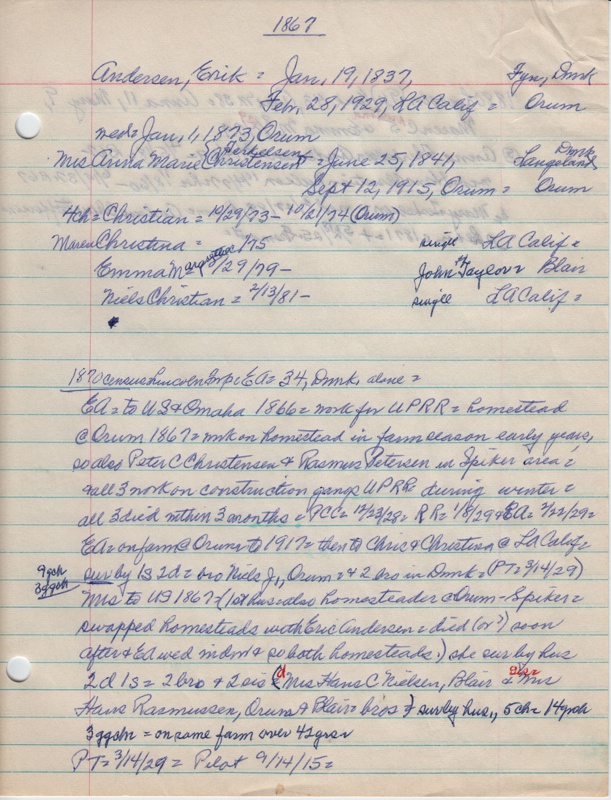 1867
Andersen, Erik = Jan, 19, 1837, Fyn, Dmk
Feb, 28, 1929, LA Calif = Orum
med = Jan, 1, 1873, Orum
Mis Anna Marie Christensen = June 25, 1841, Langeland Dmk
Sept 12, 1915, Orum = Orum
4ch = Christian = 10/29/73 - 10/21/74 (Orum)
Maren Christina = /75 single LA Calif =
Emma Margarethe /29/79 - John Taylor = Blair
Niels Christian = 2/13/81 - single LA Calif =
1870 census Lincoln = EA = 34, Dmk, alone =
EA = to US & Omaha 1866 = work for UPRR = homestead
@ Orum 1867 = wrk on homestead in farm season early years,
so also Peter C Christensen & Rasmus Petersen in Spiker area =
& all 3 work on construction gangs UPRR during winter =
all 3 died within 3 months = PCC = 12/23/28 = RP = 1/8/29 & EA = 2/22/29 =
EA = on farm @ Orum to 1917 = then to Chris & Christina @ LA Calif =
9gch
3ggch
surby 1s 2d = bro Niels J,, Orum = & 2 bro in Dmk = (PT = 3/14/29)
Mis to US 1867 = (1st hus = also homesteader @ Orum - Spiker =
swapped homesteads with Eric Andersen = died (or?) soon
after & EA wed wid & so both homesteads.) she surby hus
2d 1s = 2 bro & 2 sis (Mis Hans C Nielsen, Blair & Mis
Hans Rasmussen, Orum & Blair = bros) surby hus,, 5ch = 14gch
3ggch = on same farm over 42 yrs
PT = 3/14/29 = Pilot 9/14/15 =